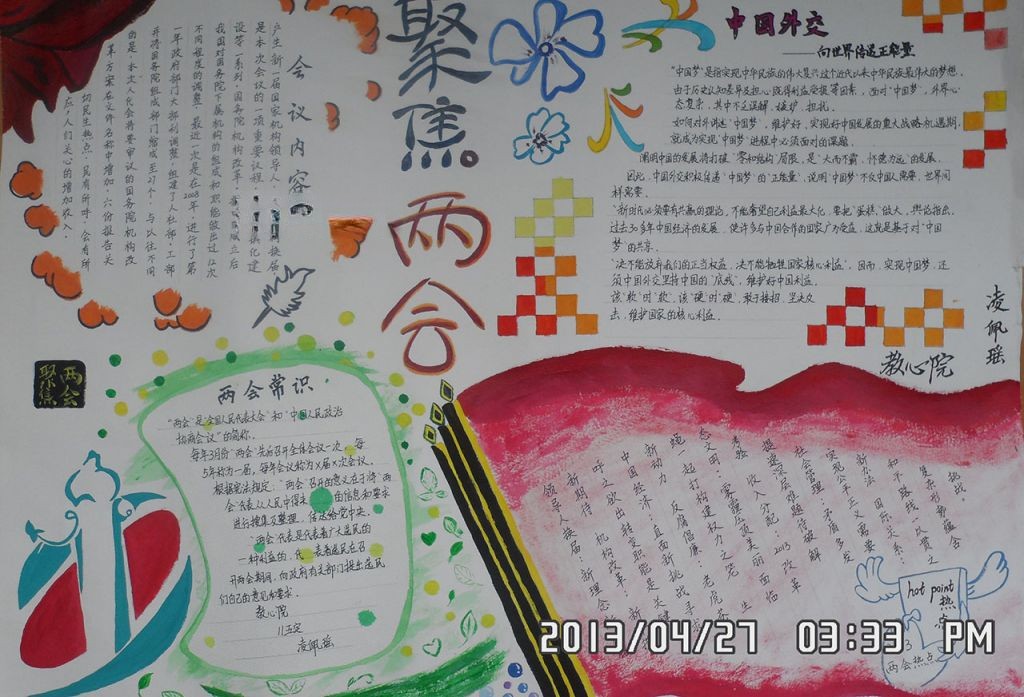 聚焦两会
会议内容
产生新一届国家机构领导人，
是本次会议的一项重要议程。
设等一系列，国务院机构改革，
我国对国务院下属机构的组成和职能做出过12次
不同程度的调整。最近一次是在2008年，进行了第
一年政府部门大部制调整，组建了人社部、工部
并将国务院组成部门缩减至27个。与以往不同
的是，本次人代会将要审议的国务院机构改
革方案在文件名称中增加
切民生热点，民有所呼，会有所
应，人们关心的增加收入。
中国外交
——向世界传递正能量
“中国梦”是指实现中华民族的伟大复兴这个近代以来中华民族最伟大的梦想。
由于历史认知差异及担心既得利益受损等因素，面对“中国梦”，外界心
态复杂，其中不乏误解、
如何对外讲述“中国梦”，维护好、实现好中国发展的重大战略机遇期，
就成为实现“中国梦”进程中必须面对的课题。
阐明中国的发展将打破“零和结构”局限，是“大而不霸，怀德为远”的发展。
因此，中国外交积极传递“中国梦”的“正能量”，说明“中国梦”不仅中国人需要，世界同
样需要。
“新时代必须要有共赢的理论，不能奢望自己利益最大化，要把‘蛋糕’做大。舆论指出，
过去30多年中国经济的发展，使许多与中国合作的国家广为受益，这就是基于对“中国
梦”的共享。
“决不能放弃我们的正当权益，决不能牺牲国家核心利益”。因而，实现中国梦，还
须中国外交坚持中国的“底线”，维护好中国利益。
该“软”时“软”，该“硬”时“硬”，敢于接招，坚决反
击，维护国家的核心利益。
凌佩瑶
教心院
两会聚焦
两会常识
“两会”是“全国人民代表大会”和“中国人民政治
协商会议”的简称。
每年3月份“两会”先后召开全体会议一次，每
5年称为一届，每年会议称为X届X次会议。
根据宪法规定：“两会”召开的意义在于将“两
会”代表从人民中得来 的信息和要求
进行搜集及整理，传达给党中央。
“两会”代表是代表着广大选民的
一种利益的，代表着选民在召
开两会期间，向政府有关部门提出选民
们自己的意见和要求。
教心院
凌佩瑶
挑战
复杂形势蕴含
和平路线一以贯之
新办法：国际关系：
实现公平正义需要
社会管理：矛盾多发
提速发展难题待破解
收入分配：2013改革
考验
态文明：雾霾压顶美丽面临
一起打构建权力之笼
反腐倡廉：老虎苍
新动力
中国经济：直面新挑战寻求
呼之欲出转变职能是关键
新期待：机构改革：新
领导人换届：新理念
hot point
热点
两会热点
2013/04/27 03:33 PM